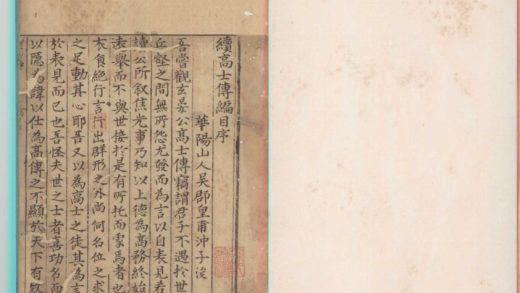 續高士傳編目序
華陽山人吳郡皇甫沖子浚
吾嘗觀玄晏公高士傳竊謂君子不遇於世
丘壑之間無所怨尤發而為言以自表見若
讀公所叙焦光事乃知以上德為高務終始
遠舉而不與世接於是有所托而蒙焉者也
衣食絕行言行出群形之外尚何名位之求
之足動其心耶吾又以為高士之徒其為言
於表見而已也吾怪夫世之士者喜功名而
以隱為諱以仕為高傳之不顯於天下有